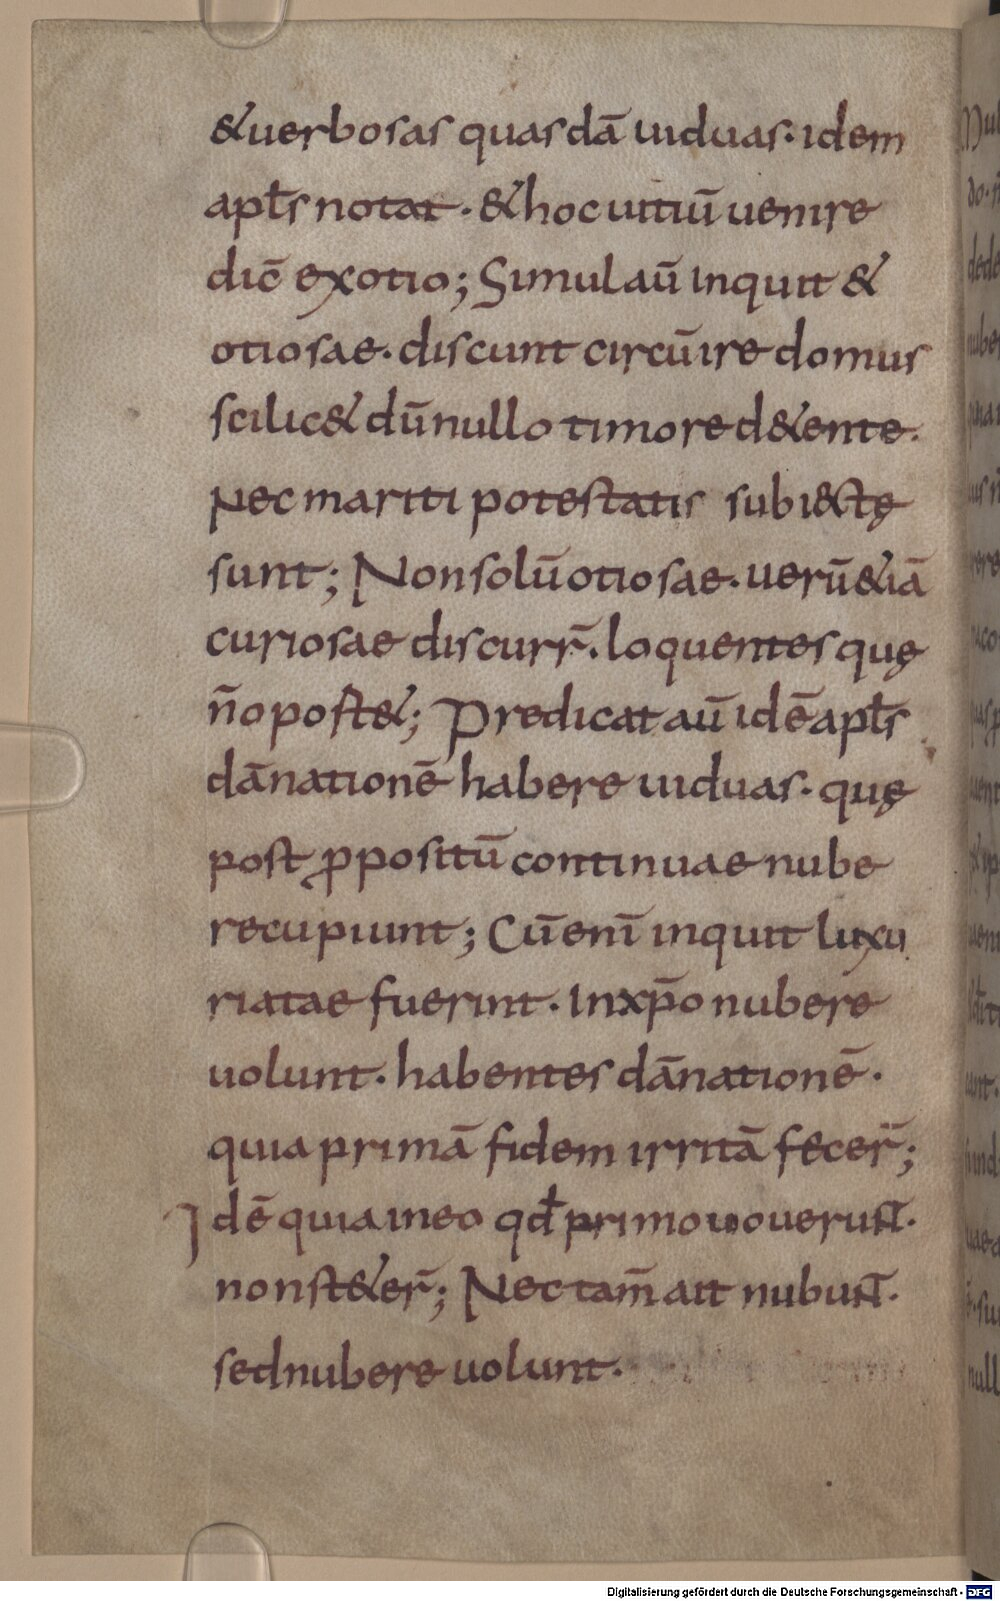 &uerbosas quasdā uiduas· idem
apłs notat· & hoc uitiū uenire
dic̄ exotio; Simul aū inquit &
otiosae· discunt circū ire domus
scilic& dū nullo timore d&ente·
Nec mariti potestatis subi&tę
sunt; Non solū otiosae· uerū &iā
curiosae discurr̄· loquentes quę
n̄ oport&; Predicat aū idē apłs
dānationē habere uiduas· quę
post ꝓpositū continuae nube
re cupiunt; Cū enī inquit luxu
riatae fuerint· In xp̄o nubere
uolunt· habentes dānationē·
quia primā fidem irritā fecer̄;
Idē quia in eo qđ primo uouerunt·
non stder̄; Nec tam̄ ait nubunt·
sed nubere uolunt·
Digitalisierung gefördert durch die Deutsche Forschungsgemeinschaft - DFG